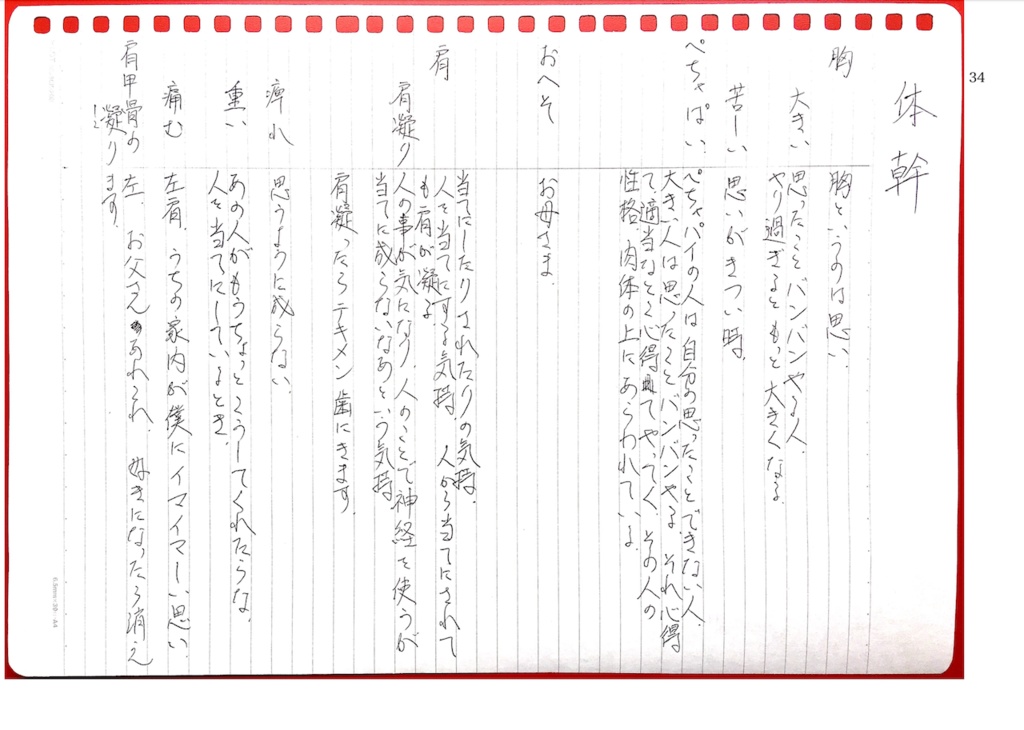 34
体幹
胸
胸というのは思い
大きい
思ったことバンバンやる人、
やり過ぎるともっと大きくなる。
苦しい
思いがきつい時。
ぺちゃぱい
ぺちゃパイの人は自分の思ったことできない人。
大きい人は思ったことバンバンやる。それ心得
て適当なとこ心得てやってく、その人の
性格、肉体の上にあらわれている。
おへそ
お母さま
肩
当てにしたりされたりの気持。
人を当てにする気持 人から当てにされて
も肩が凝る
肩凝り
人の事が気になり、人のことで神経を使うが
当てに成らないなあという気持
肩凝ったらテキメン歯にきます。
痺れ
思うように成らない。
重い
あの人がもうちょっとこうしてくれたらな、
人を当てにしているとき。
痛む
左肩、うちの家内が僕にイマイマしい思い。
肩甲骨の
凝り
左、お父さん あれこれ ぬきになったら消え
ます。
6.5mm×39 A4